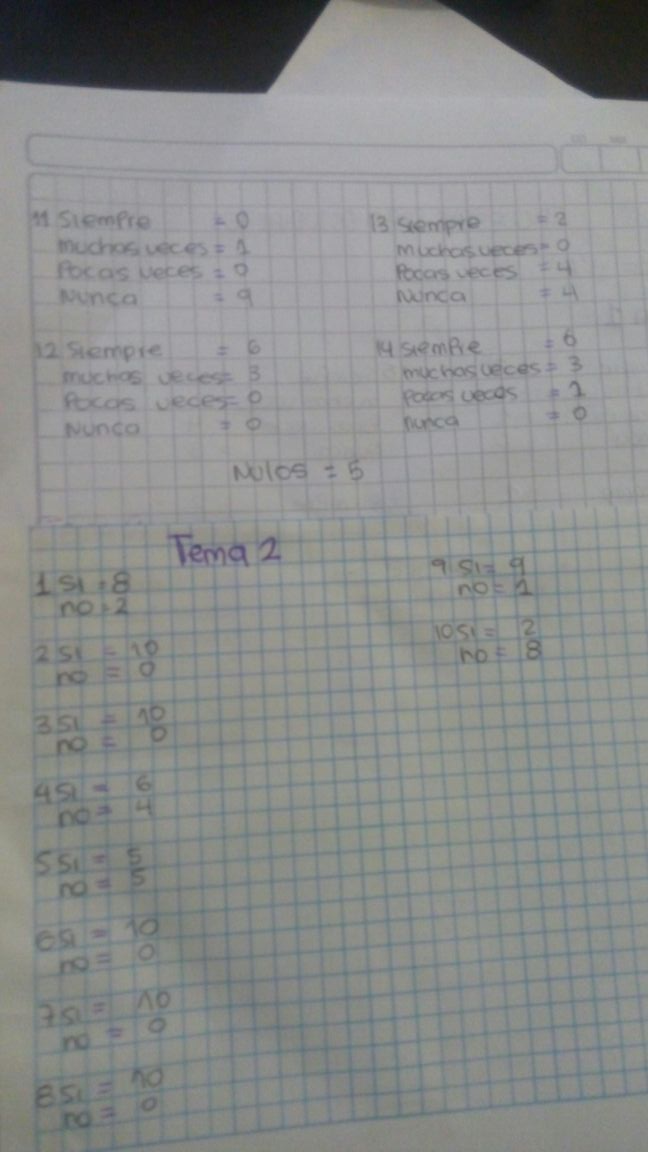 11 Siempre = 0
muchas veces = 1
Pocas veces = 0
Nunca = 9
12 Siempre = 6
muchas veces = 3
Pocas veces = 0
Nunca = 0
13 siempre = 2
muchas veces = 0
Pocas veces = 4
Nunca = 4
14 siempre = 6
muchas veces = 3
Pocas veces = 1
nunca = 0
Nulos = 5
Tema 2
1 si = 8
no = 2
2 si = 10
no = 0
3 si = 10
no = 0
4 si = 6
no = 4
5 si = 5
no = 5
6 si = 10
no = 0
7 si = 10
no = 0
8 si = 10
no = 0
9 si = 9
no = 1
10 si = 2
no = 8